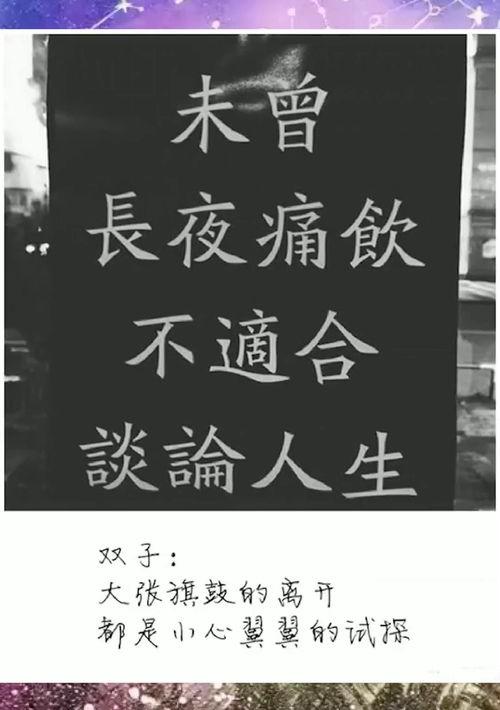 未曾
長夜痛飲
不適合
談論人生
双子：
大张旗鼓的离开
都是小心翼翼的试探